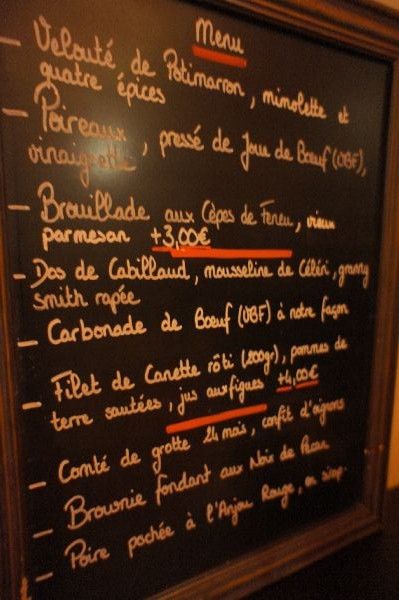 Menu
- Velouté de Potimarron, mimolette et
quatre épices
- Poireaux, pressé de Joue de Bœuf (VBF),
vinaigrette
- Brouillade aux Cèpes de Feneu, vieux
parmesan +3,00€
- Dos de Cabillaud, mousseline de Céléri, granny
smith rapée
- Carbonade de Bœuf (VBF) à notre façon
- Filet de Canette rôti (200gr), pommes de
terre sautées, jus aux figues +4,00€
- Comté de grotte 24 mois, confit d'oignons
- Brownie fondant aux Noix de Pécan
- Poire pochée à l'Anjou Rouge, en sirop.